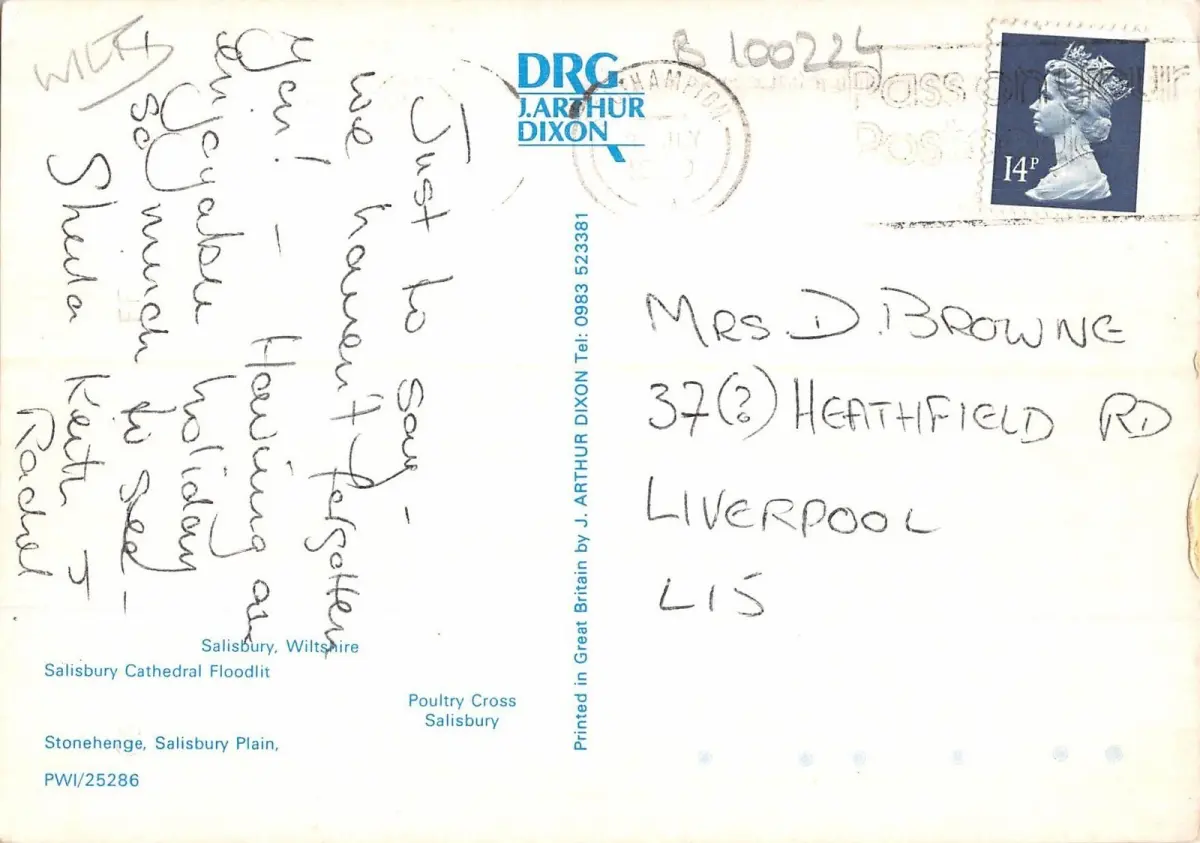 WILTS
B 100224
Just to say -
we haven't forgotten
you! - Having an
enjoyable holiday
so much to see -
Sheila Keith &
Rachel
DRG
J.ARTHUR
DIXON
HAMPTON
JLY
Pass on your
Post
14P
MRS. D. BROWNE
37(?) HEATHFIELD RD
LIVERPOOL
L15
Printed in Great Britain by J. ARTHUR DIXON Tel: 0983 523381
Salisbury, Wiltshire
Salisbury Cathedral Floodlit
Poultry Cross
Salisbury
Stonehenge, Salisbury Plain,
PWI/25286